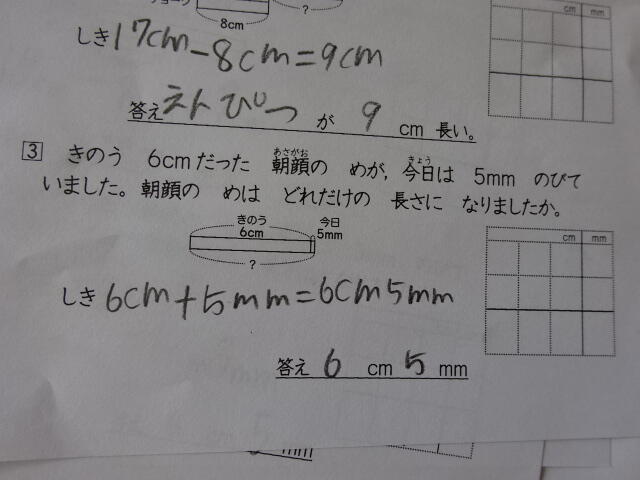 8cm
?
cm mm
しき17cm-8cm=9cm
答え えんぴつ が 9 cm 長い。
3 きのう 6cmだった 朝顔の めが,今日は 5mm のびて
あさがお きょう
いました。朝顔の めは どれだけの 長さに なりましたか。
きのう 今日
6cm 5mm
?
cm mm
しき 6cm+5mm=6cm5mm
答え 6 cm 5 mm
mm